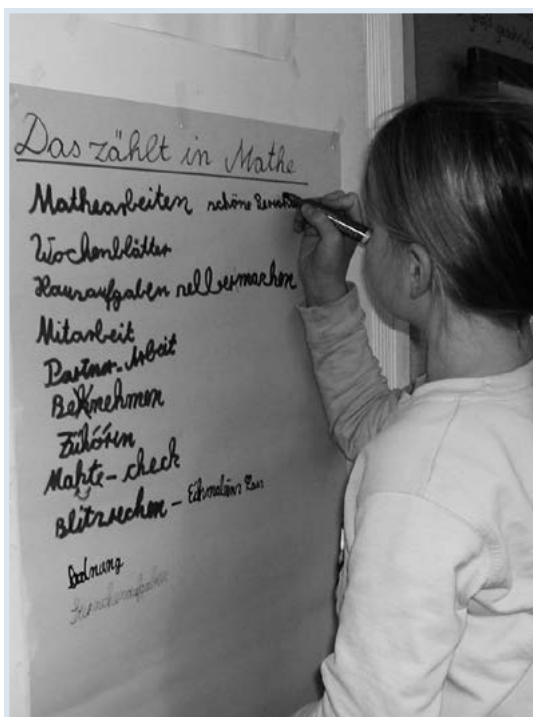 Das zählt in Mathe
Mathearbeiten schöne
Wochenblätter
Hausaufgaben selbermachen
Mitarbeit
Partner-Arbeit
Benehmen
Zuhören
Mathe-check
Blitzrechen -
Ordnung